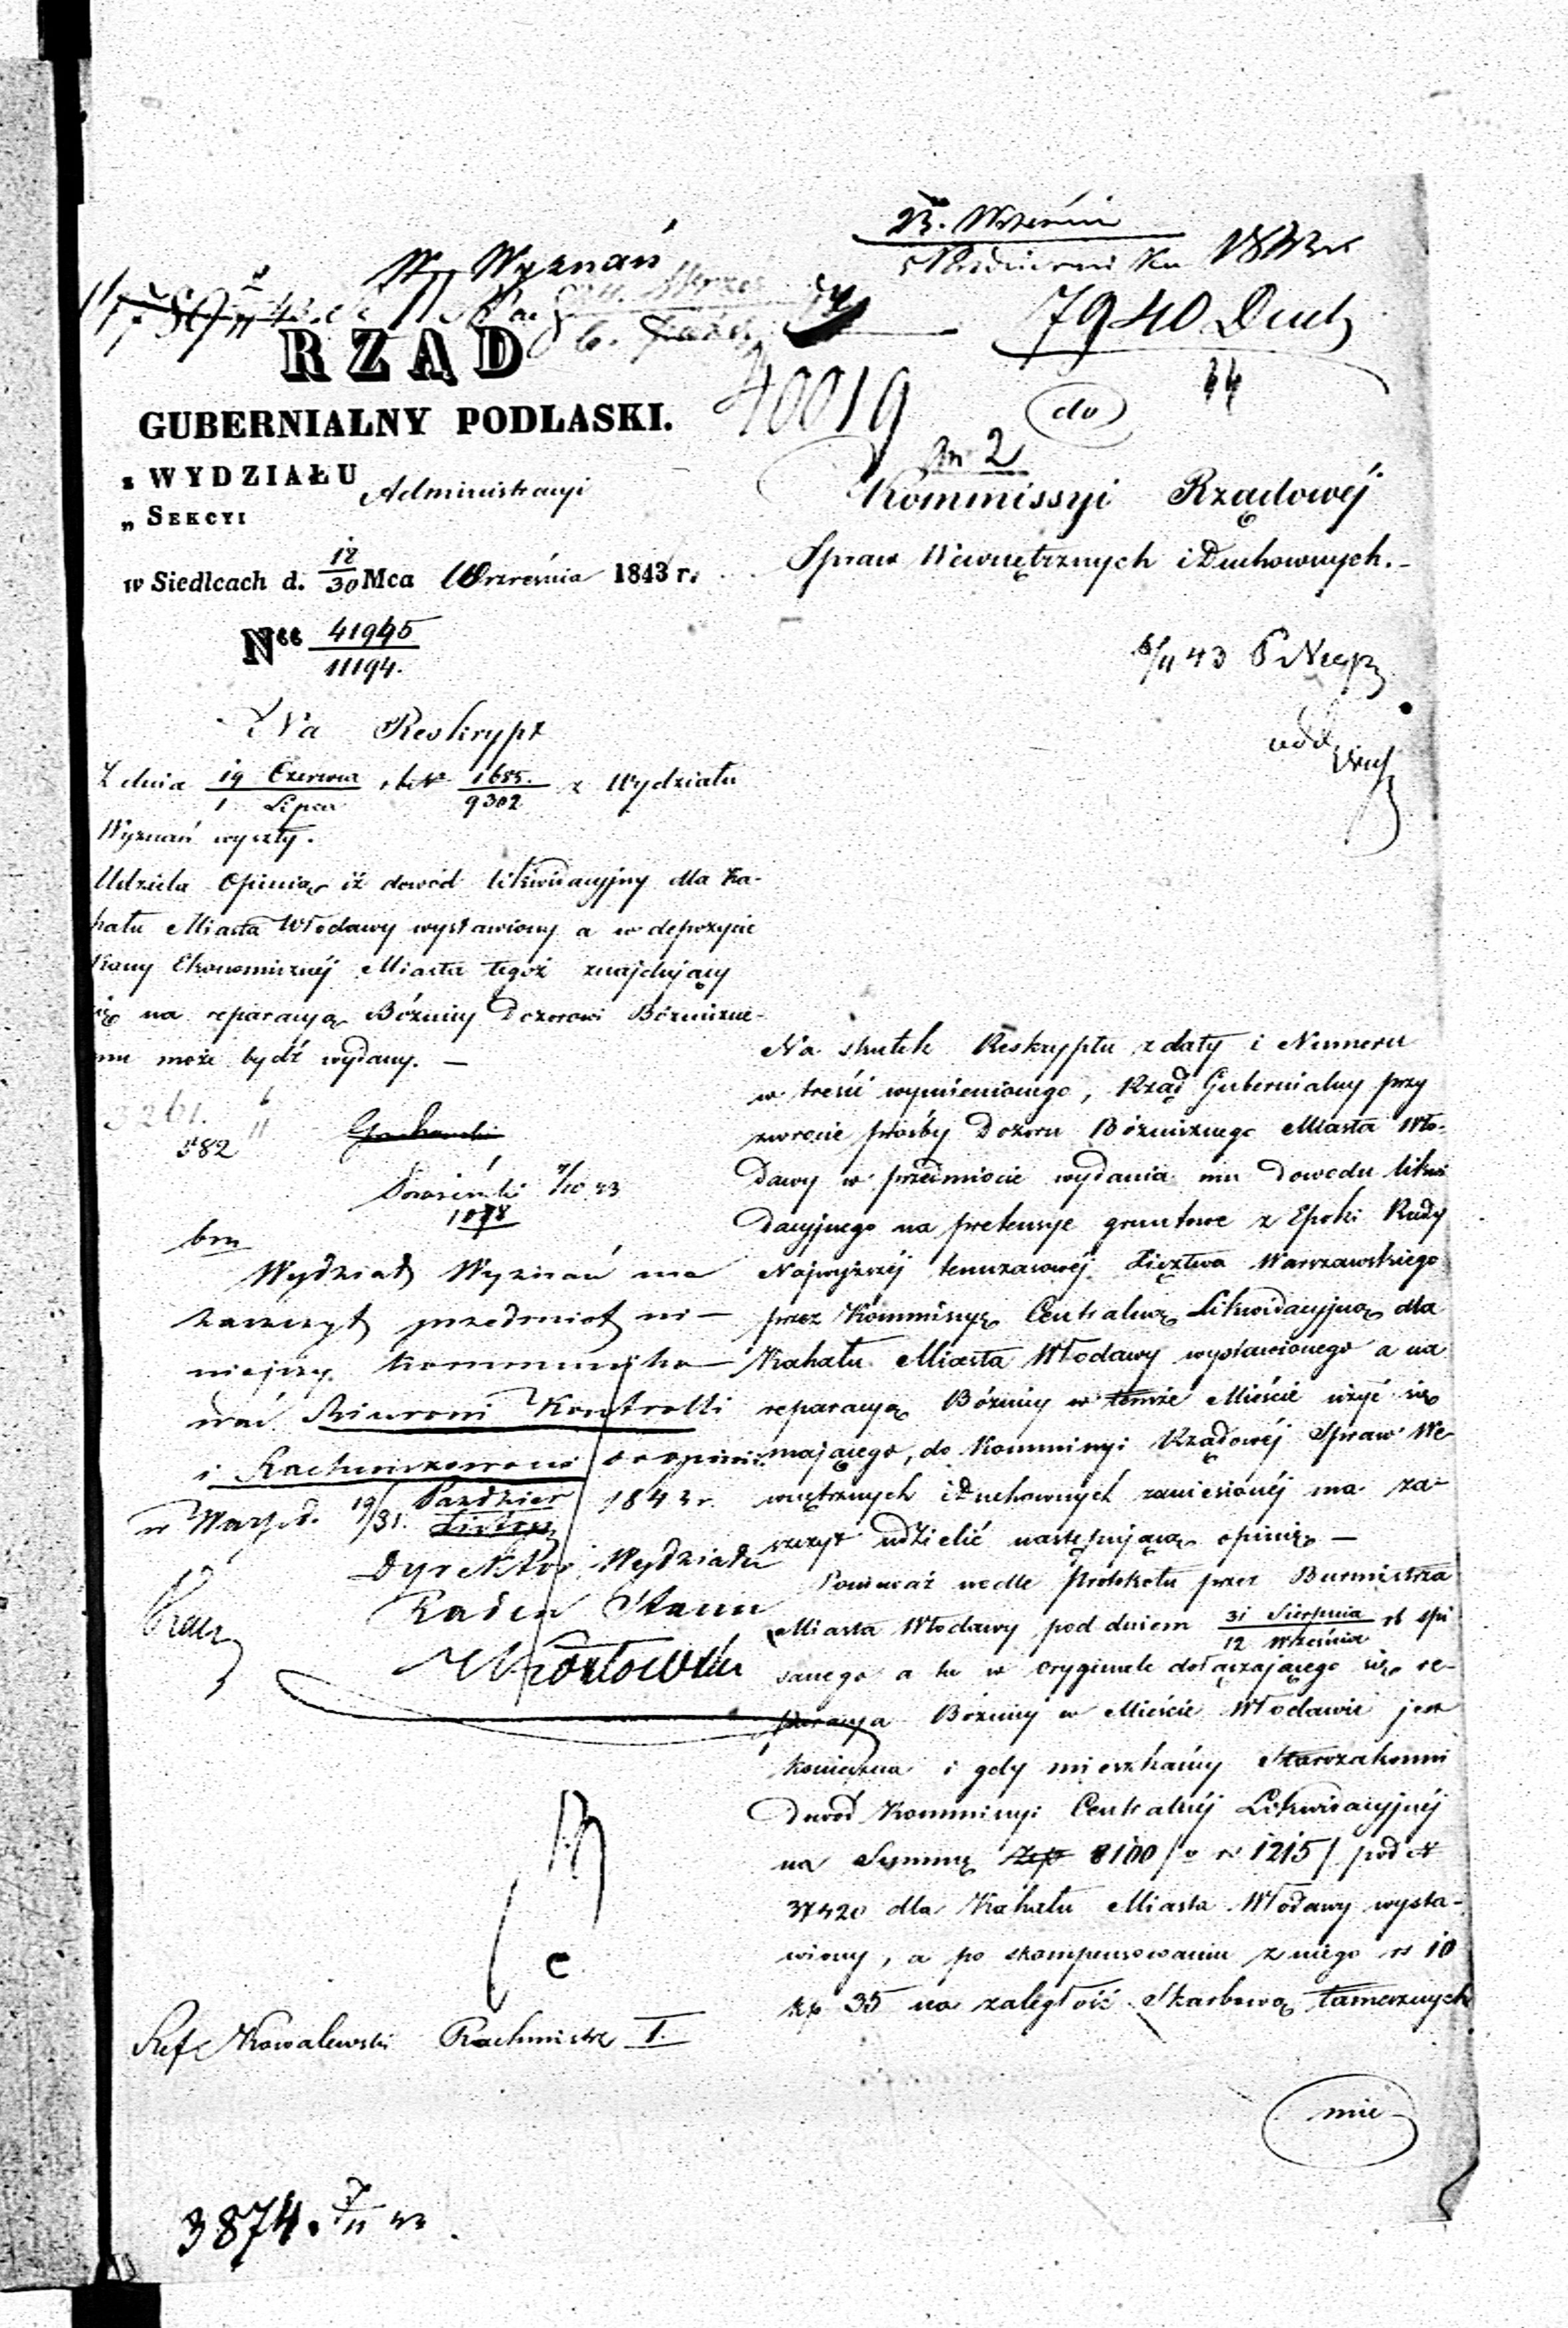 23. Wrześni
W. Wyznań
1843 r
7940 Duch
44
RZĄD
GUBERNIALNY PODLASKI.
40019
do
z WYDZIAŁU Administracyi
„ SEKCYI
2
Kommissyi Rządowéj
Spraw Wewnętrznych i Duchownych.
w Siedlcach d. 18/30 Mca Września 1843 r.
N° 41945/11194.
6/11 43
Na Reskrypt
Z dnia 19 Czerwca / 1 Lipca, N 1685./9302 z Wydziału
Wyznań wyszły.
Udziela Opinią iż dowód likwidacyjny dla Ka-
hału Miasta Włodawy wystawiony a w depozycie
Kassy Ekonomicznéj Miasta tegoż znajdujący
się na reparacyą Bóżnicy Dozorowi Bóżnicze-
mu może bydź wydany. —
3261. 6/11
582
1078
bm
Wydział Wyznań ma
zaszczyt przedmiot ni-
niejszy kommuniko-
wać Biurowi Kontrolli
i Rachunkowości do opinii
w Warsz. d. 19/31. Paździer 1843 r.
Dyrektor Wydziału
Radca Stanu
Ref. Kowalewski Rachmistrz I.
3874. 7/11 43.
Na skutek Reskryptu z daty i Numeru
w treści wymienionego, Rząd Gubernialny przy
zwrocie prośby Dozoru Bóżnicznego Miasta Wło-
dawy w przedmiocie wydania mu dowodu likwi
dacyjnego na pretensye gruntowe z Epoki Rady
Najwyższéj tymczasowéj Xięztwa Warszawskiego
przez Kommissyę Centralną Likwidacyjną dla
Kahału Miasta Włodawy wystawionego a na
reparacyą Bóżnicy w temże Mieście użyć się
mającego, do Kommissyi Rządowéj Spraw We-
wnętrznych i Duchownych zaniesionéj ma za-
szczyt udzielić następującą opinię —
Ponieważ wedle Protokołu przez Burmistrza
Miasta Włodawy pod dniem 31 Sierpnia / 12 Września rb spi
sanego a tu w oryginale dołączającego się re-
paracya Bóżnicy w Mieście Włodawie jest
konieczna i gdy mieszkańcy Starozakonni
Dowód Kommissyi Centralnéj Likwidacyjnéj
na Summę Złp 8100 / rs 1215 / pod N
37420 dla Kahału Miasta Włodawy wysta-
wiony, a po skompensowaniu z niego rs 10
kp 35 na zaległość Skarbową tamecznych
mie-